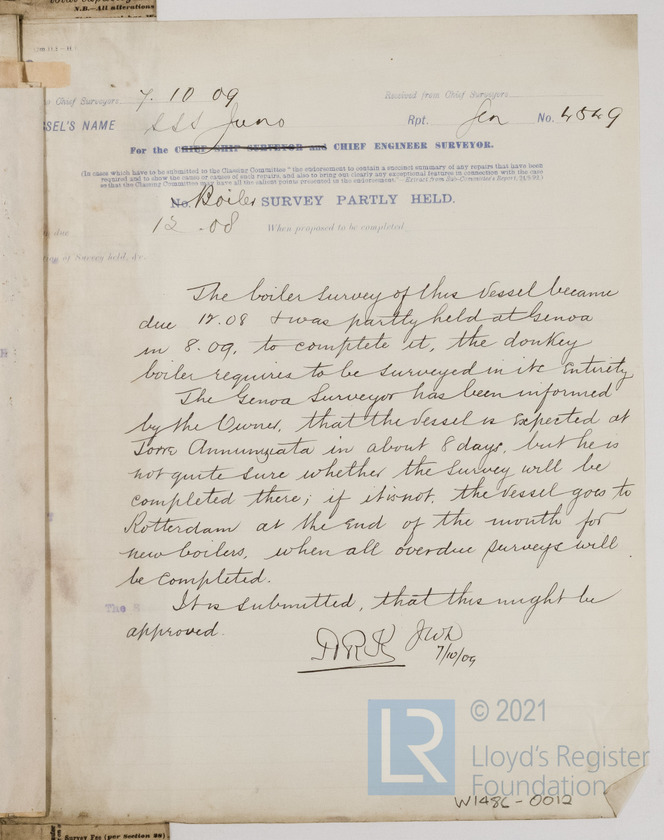 N.B.—All alterations
Chief Surveyors 7.10 09 Received from Chief Surveyors
SEL'S NAME SSS Juno Rpt. Gen No. 4549
For the CHIEF SHIP SURVEYOR and CHIEF ENGINEER SURVEYOR.
(In cases which have to be submitted to the Classing Committee "the endorsement to contain a succinct summary of any repairs that have been
required and to show the cause or causes of such repairs, and also to bring out clearly any exceptional features in connection with the case
so that the Classing Committee may have all the salient points presented in the endorsement."—Extract from Sub-Committee's Report,
No. Boiler SURVEY PARTLY HELD.
due 12.08 When proposed to be completed
of Survey held, &c.
The boiler survey of this vessel became
due 12.08 & was partly held at Genoa
in 8.09, to complete it, the donkey
boiler requires to be surveyed in its Entirety
The Genoa Surveyor has been informed
by the Owner, that the vessel is Expected at
Torre Annunziata in about 8 days, but he is
not quite sure whether the survey will be
completed there; if it is not, the vessel goes to
Rotterdam at the End of the month for
new boilers, when all overdue surveys will
be completed.
It is submitted, that this might be
approved.
7/10/09
The S
LR © 2021
Lloyd's Register
Foundation
W1486-0012
Survey Fee (per Section 28)